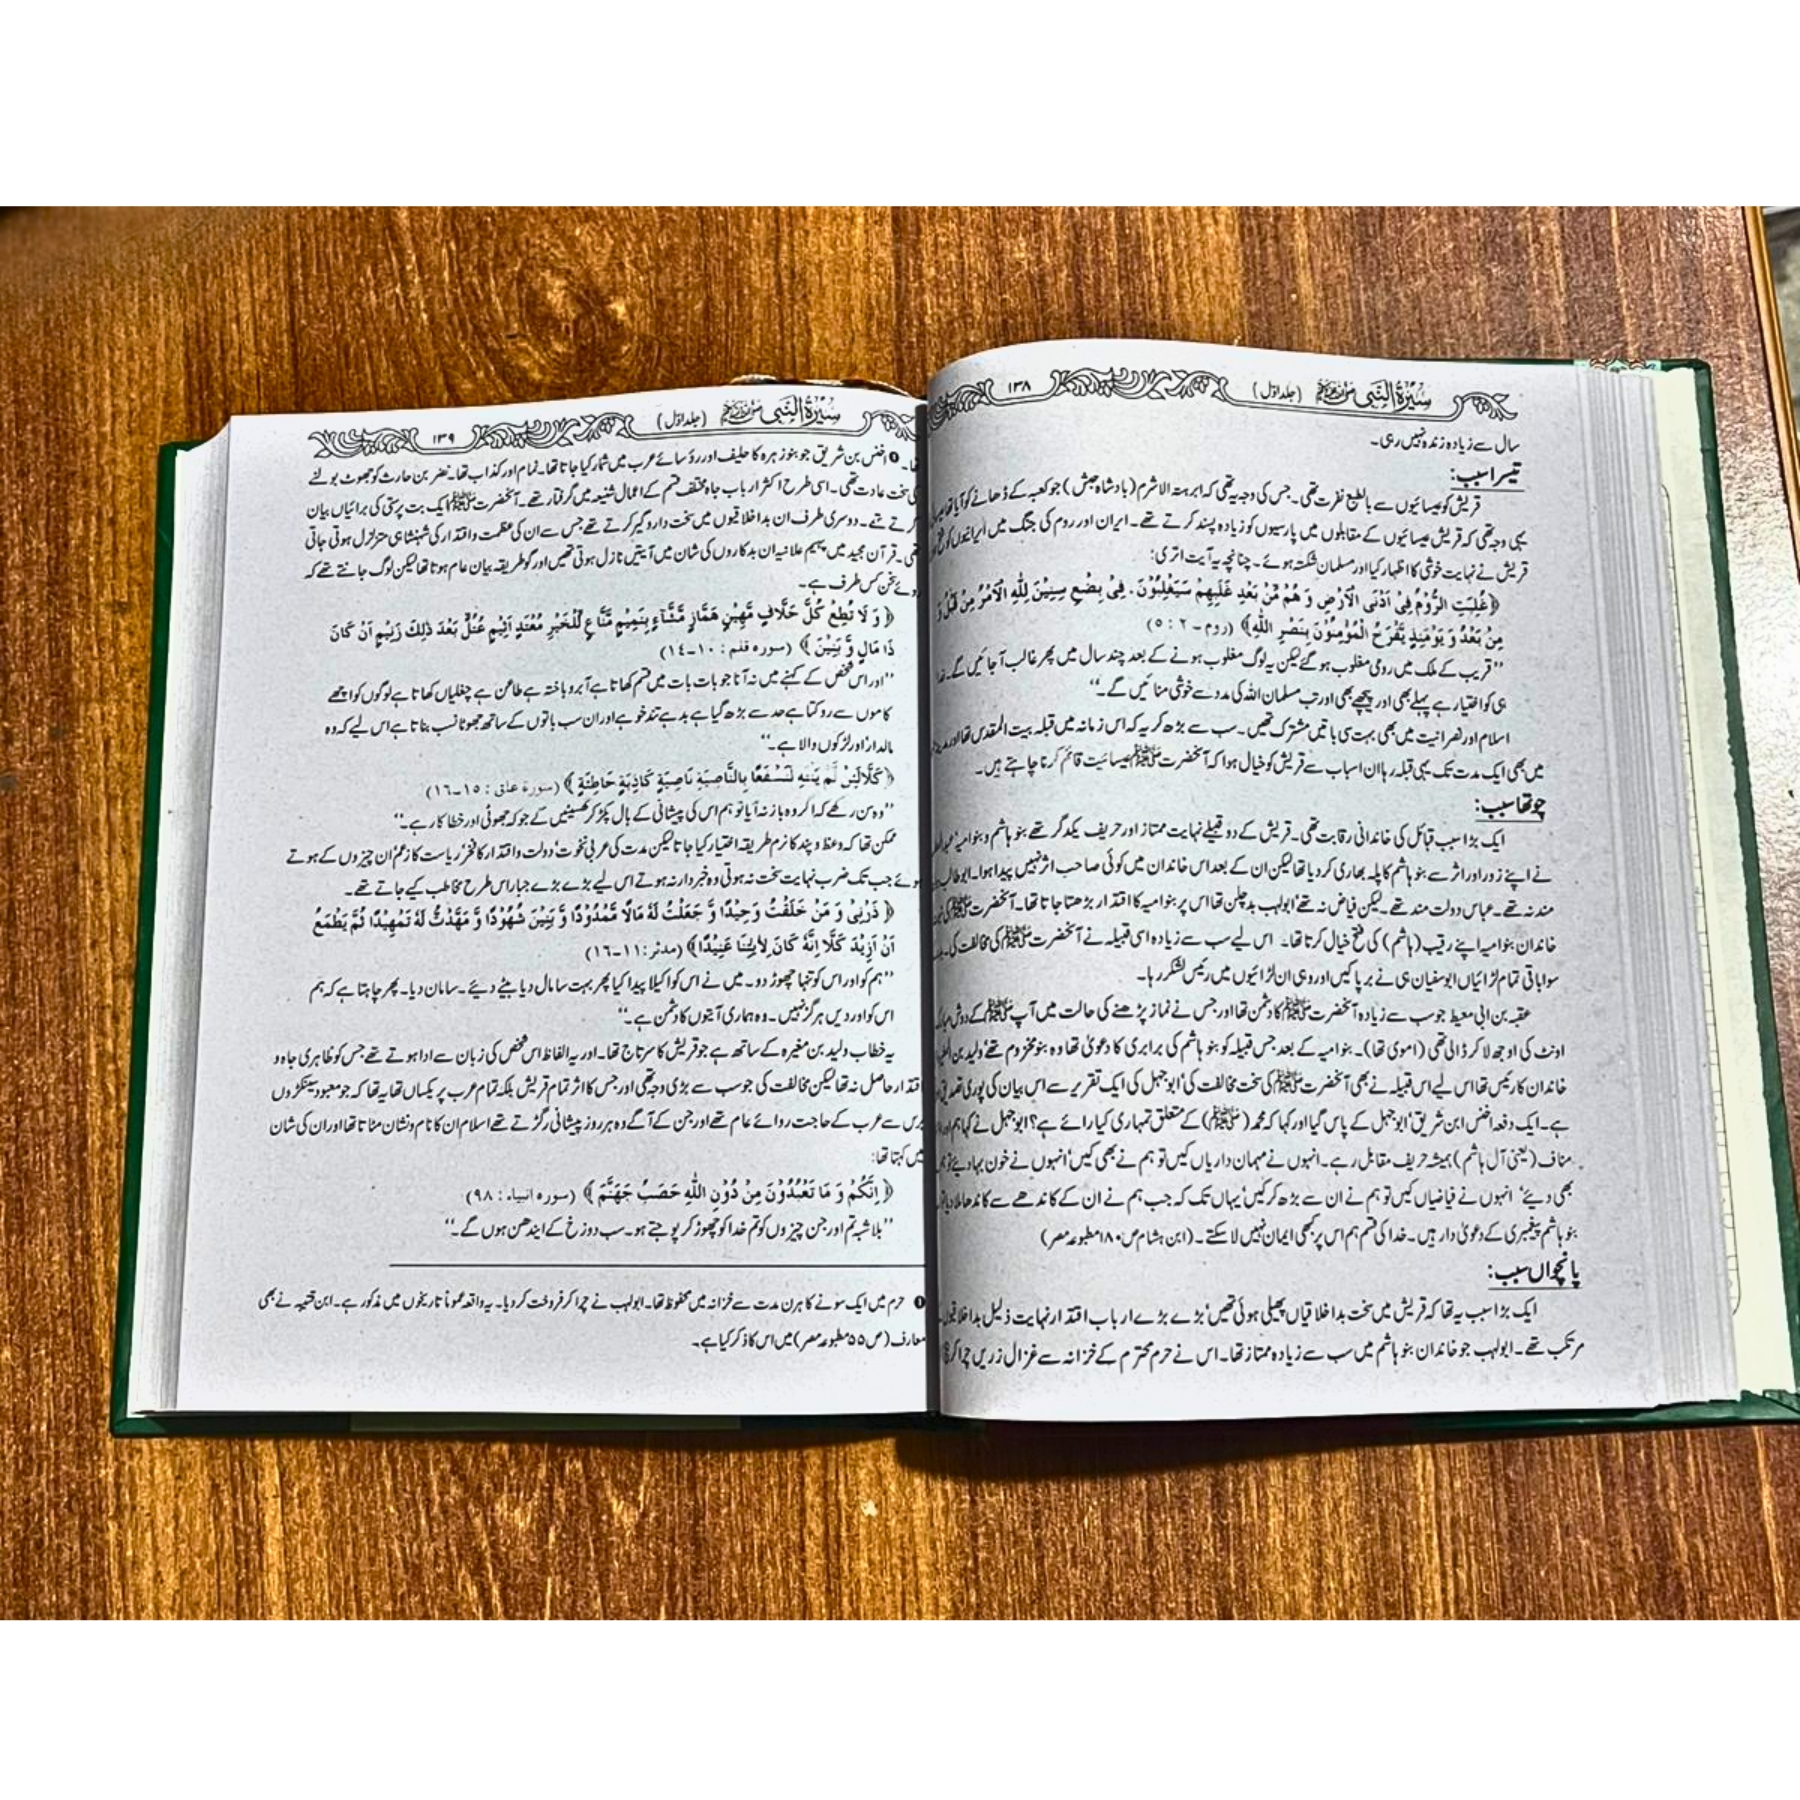 سیرۃ النبی ﷺ (جلد اوّل) ۱۳۸
سال سے زیادہ زندہ نہیں رہی۔
تیسرا سبب:
قریش کو عیسائیوں سے بالطبع نفرت تھی۔ جس کی وجہ یہ تھی کہ ابرہۃ الاشرم (بادشاہ حبش) جو کعبہ کے ڈھانے کو آیا تھا
یہی وجہ تھی کہ قریش عیسائیوں کے مقابلوں میں پارسیوں کو زیادہ پسند کرتے تھے۔ ایران اور روم کی جنگ میں ایرانیوں کو فتح
قریش نے نہایت خوشی کا اظہار کیا اور مسلمان شکستہ ہوئے۔ چنانچہ یہ آیت اتری:
﴿غُلِبَتِ الرُّوْمُ فِیْ اَدْنَی الْاَرْضِ وَ هُمْ مِّنْ بَعْدِ غَلَبِهِمْ سَیَغْلِبُوْنَ۔ فِیْ بِضْعِ سِنِیْنَ لِلّٰهِ الْاَمْرُ مِنْ قَبْلُ وَ
مِنْ بَعْدُ وَ یَوْمَئِذٍ یَّفْرَحُ الْمُؤْمِنُوْنَ بِنَصْرِ اللّٰهِ﴾ (روم۔۲ : ۵)
’’قریب کے ملک میں رومی مغلوب ہو گئے لیکن یہ لوگ مغلوب ہونے کے بعد چند سال میں پھر غالب آ جائیں گے۔
ہی کو اختیار ہے پہلے بھی اور پیچھے بھی اور تب مسلمان اللہ کی مدد سے خوشی منائیں گے۔‘‘
اسلام اور نصرانیت میں بھی بہت سی باتیں مشترک تھیں۔ سب سے بڑھ کر یہ کہ اس زمانہ میں قبلہ بیت المقدس تھا اور
میں بھی ایک مدت تک یہی قبلہ رہا ان اسباب سے قریش کو خیال ہوا کہ آنحضرت ﷺ عیسائیت قائم کرنا چاہتے ہیں۔
چوتھا سبب:
ایک بڑا سبب قبائل کی خاندانی رقابت تھی۔ قریش کے دو قبیلے نہایت ممتاز اور حریف یکدگر تھے بنو ہاشم و بنو امیہ
نے اپنے زور اور اثر سے بنو ہاشم کا پلہ بھاری کر دیا تھا لیکن ان کے بعد اس خاندان میں کوئی صاحب اثر نہیں پیدا ہوا۔ ابو طالب
مند نہ تھے۔ عباس دولت مند تھے۔ لیکن فیاض نہ تھے‘ ابو لہب بد چلن تھا اس پر بنو امیہ کا اقتدار بڑھتا جاتا تھا۔ آنحضرت ﷺ کی
خاندان بنو امیہ اپنے رقیب (ہاشم) کی فتح خیال کرتا تھا۔ اس لیے سب سے زیادہ اسی قبیلہ نے آنحضرت ﷺ کی مخالفت کی۔
سوا باقی تمام لڑائیاں ابو سفیان ہی نے برپا کیں اور وہی ان لڑائیوں میں رئیس لشکر رہا۔
عقبہ بن ابی معیط جو سب سے زیادہ آنحضرت ﷺ کا دشمن تھا اور جس نے نماز پڑھنے کی حالت میں آپ ﷺ کے دوش مبارک
اونٹ کی اوجھ لا کر ڈالی تھی (اموی تھا)۔ بنو امیہ کے بعد جس قبیلہ کو بنو ہاشم کی برابری کا دعویٰ تھا وہ بنو مخزوم تھے‘ ولید بن
خاندان کا رئیس تھا اس لیے اس قبیلہ نے بھی آنحضرت ﷺ کی سخت مخالفت کی‘ ابو جہل کی ایک تقریر سے اس بیان کی پوری تصدیق
ہے۔ ایک دفعہ اخنس ابن شریق‘ ابو جہل کے پاس گیا اور کہا کہ محمد (ﷺ) کے متعلق تمہاری کیا رائے ہے؟ ابو جہل نے کہا ہم اور
مناف (یعنی آل ہاشم) ہمیشہ حریف مقابل رہے۔ انہوں نے مہمان داریاں کیں تو ہم نے بھی کیں‘ انہوں نے خون بہا دیئے تو ہم
بھی دیئے‘ انہوں نے فیاضیاں کیں تو ہم نے ان سے بڑھ کر کیں‘ یہاں تک کہ جب ہم نے ان کے کاندھے سے کاندھا ملا دیا تو
بنو ہاشم پیغمبری کے دعویٰ دار ہیں۔ خدا کی قسم ہم اس پر کبھی ایمان نہیں لا سکتے۔ (ابن ہشام ص ۱۸۰ مطبوعہ مصر)
پانچواں سبب:
ایک بڑا سبب یہ تھا کہ قریش میں سخت بد اخلاقیاں پھیلی ہوئی تھیں‘ بڑے بڑے ارباب اقتدار نہایت ذلیل بد اخلاقیوں
مرتکب تھے۔ ابو لہب جو خاندان بنو ہاشم میں سب سے زیادہ ممتاز تھا۔ اس نے حرم محترم کے خزانہ سے غزال زریں چرا کر
سیرۃ النبی ﷺ (جلد اوّل) ۱۳۹
تھا۔ ❶ اخنس بن شریق جو بنو زہرہ کا حلیف اور رؤسائے عرب میں شمار کیا جاتا تھا۔ نمام اور کذاب تھا۔ نضر بن حارث کو جھوٹ بولنے
کی سخت عادت تھی۔ اسی طرح اکثر ارباب جاہ مختلف قسم کے اعمال شنیعہ میں گرفتار تھے۔ آنحضرت ﷺ ایک بت پرستی کی برائیاں بیان
کرتے تھے۔ دوسری طرف ان بد اخلاقیوں میں سخت دارو گیر کرتے تھے جس سے ان کی عظمت و اقتدار کی شہنشاہی متزلزل ہوتی جاتی
تھی۔ قرآن مجید میں پیہم علانیہ ان بدکاروں کی شان میں آیتیں نازل ہوتی تھیں اور گو طریقہ بیان عام ہوتا تھا لیکن لوگ جانتے تھے کہ
روئے سخن کس طرف ہے۔
﴿وَ لَا تُطِعْ كُلَّ حَلَّافٍ مَّهِیْنٍ هَمَّازٍ مَّشَّآءٍ بِنَمِیْمٍ مَّنَّاعٍ لِّلْخَیْرِ مُعْتَدٍ اَثِیْمٍ عُتُلٍّ بَعْدَ ذٰلِكَ زَنِیْمٍ اَنْ كَانَ
ذَا مَالٍ وَّ بَنِیْنَ﴾ (سورہ قلم : ۱۰۔۱۴)
’’اور اس شخص کے کہنے میں نہ آنا جو بات بات میں قسم کھاتا ہے آبرو باختہ ہے طاعن ہے چغلیاں کھاتا ہے لوگوں کو اچھے
کاموں سے روکتا ہے حد سے بڑھ گیا ہے بد ہے تند خو ہے اور ان سب باتوں کے ساتھ جھوٹا نسب بناتا ہے اس لیے کہ وہ
مالدار‘ اور لڑکوں والا ہے۔‘‘
﴿كَلَّا لَئِنْ لَّمْ یَنْتَهِ لَنَسْفَعًا بِالنَّاصِیَةِ نَاصِیَةٍ كَاذِبَةٍ خَاطِئَةٍ﴾ (سورۂ علق : ۱۵۔۱۶)
’’وہ سن رکھے کہ اگر وہ باز نہ آیا تو ہم اس کی پیشانی کے بال پکڑ کر گھسیٹیں گے جو کہ جھوٹی اور خطاکار ہے۔‘‘
ممکن تھا کہ وعظ و پند کا نرم طریقہ اختیار کیا جاتا لیکن مدت کی عربی نخوت‘ دولت و اقتدار کا فخر‘ ریاست کا زعم‘ ان چیزوں کے ہوتے
ہوئے جب تک ضرب نہایت سخت نہ ہوتی وہ خبردار نہ ہوتے اس لیے بڑے بڑے جبار اس طرح مخاطب کیے جاتے تھے۔
﴿ذَرْنِیْ وَ مَنْ خَلَقْتُ وَحِیْدًا وَّ جَعَلْتُ لَهٗ مَالًا مَّمْدُوْدًا وَّ بَنِیْنَ شُهُوْدًا وَّ مَهَّدْتُّ لَهٗ تَمْهِیْدًا ثُمَّ یَطْمَعُ
اَنْ اَزِیْدَ كَلَّا اِنَّهٗ كَانَ لِاٰیٰتِنَا عَنِیْدًا﴾ (مدثر : ۱۱۔۱۶)
’’ہم کو اور اس کو تنہا چھوڑ دو۔ میں نے اس کو اکیلا پیدا کیا پھر بہت سا مال دیا بیٹے دیئے۔ سامان دیا۔ پھر چاہتا ہے کہ ہم
اس کو اور دیں ہرگز نہیں۔ وہ ہماری آیتوں کا دشمن ہے۔‘‘
یہ خطاب ولید بن مغیرہ کے ساتھ ہے جو قریش کا سرتاج تھا۔ اور یہ الفاظ اس شخص کی زبان سے ادا ہوتے تھے جس کو ظاہری جاہ و
اقتدار حاصل نہ تھا لیکن مخالفت کی جو سب سے بڑی وجہ تھی اور جس کا اثر تمام قریش بلکہ تمام عرب پر یکساں تھا یہ تھا کہ جو معبود سینکڑوں
برس سے عرب کے حاجت روائے عام تھے اور جن کے آگے وہ ہر روز پیشانی رگڑتے تھے اسلام ان کا نام و نشان مٹاتا تھا اور ان کی شان
میں کہتا تھا:
﴿اِنَّكُمْ وَ مَا تَعْبُدُوْنَ مِنْ دُوْنِ اللّٰهِ حَصَبُ جَهَنَّمَ﴾ (سورہ انبیاء : ۹۸)
’’بلا شبہ تم اور جن چیزوں کو تم خدا کو چھوڑ کر پوجتے ہو۔ سب دوزخ کے ایندھن ہوں گے۔‘‘
❶ حرم میں ایک سونے کا ہرن مدت سے خزانہ میں محفوظ تھا۔ ابو لہب نے چرا کر فروخت کر دیا۔ یہ واقعہ عموماً تاریخوں میں مذکور ہے۔ ابن قتیبہ نے بھی
معارف (ص ۵۵ مطبوعہ مصر) میں اس کا ذکر کیا ہے۔